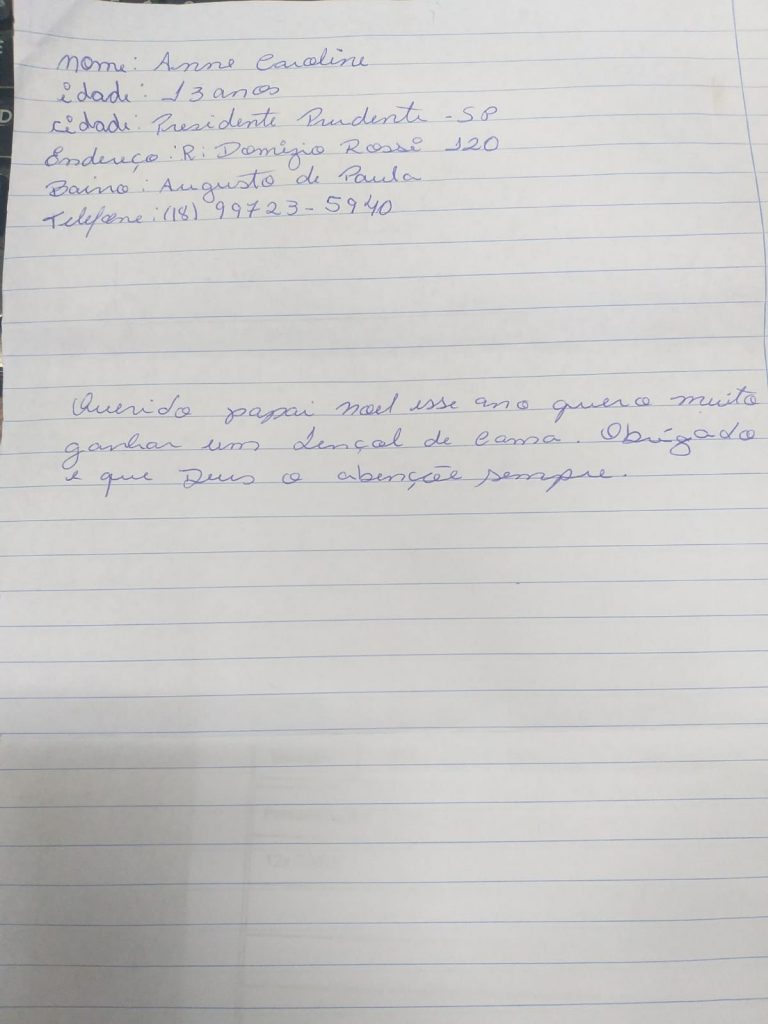 Nome: Anne Caroline
idade: 13 anos
cidade: Presidente Prudente - SP
Endereço: R: Domizio Rossi 120
Bairro: Augusto de Paula
Telefone: (18) 99723-5940
Querido papai noel esse ano quero muito
ganhar um lençol de cama. Obrigado
e que Deus o abençõe sempre.